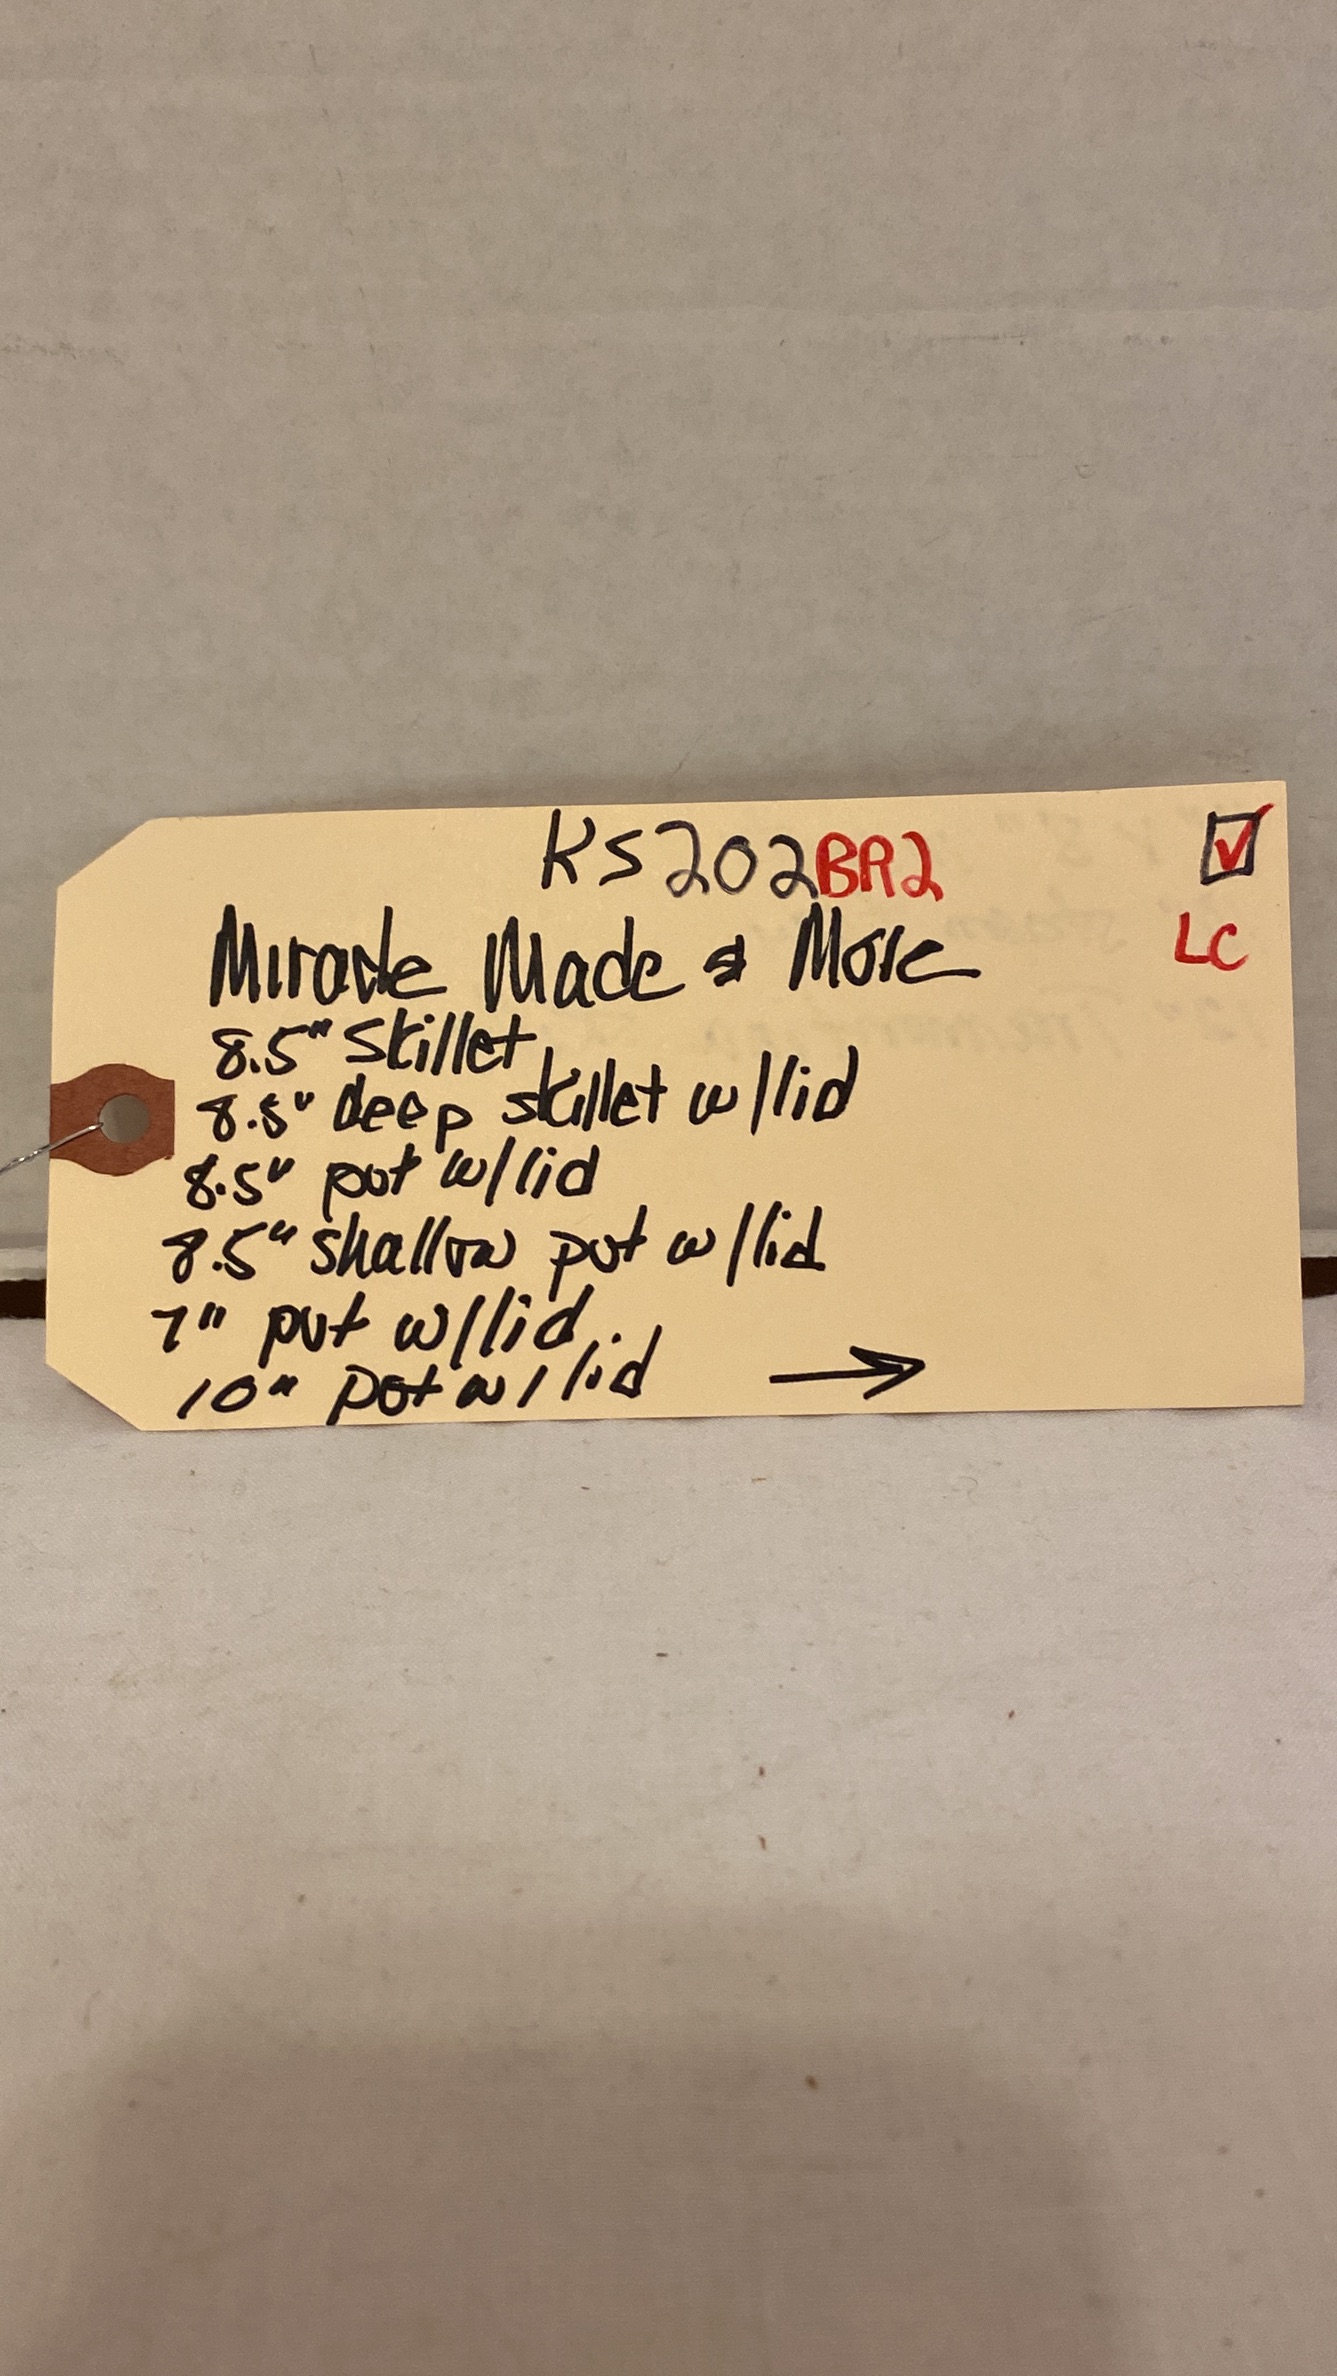 KS202BR2
LC
Miracle Made & More
8.5" skillet
8.5" deep skillet w/lid
8.5" pot w/lid
8.5" shallow pot w/lid
7" pot w/lid
10" pot w/lid →